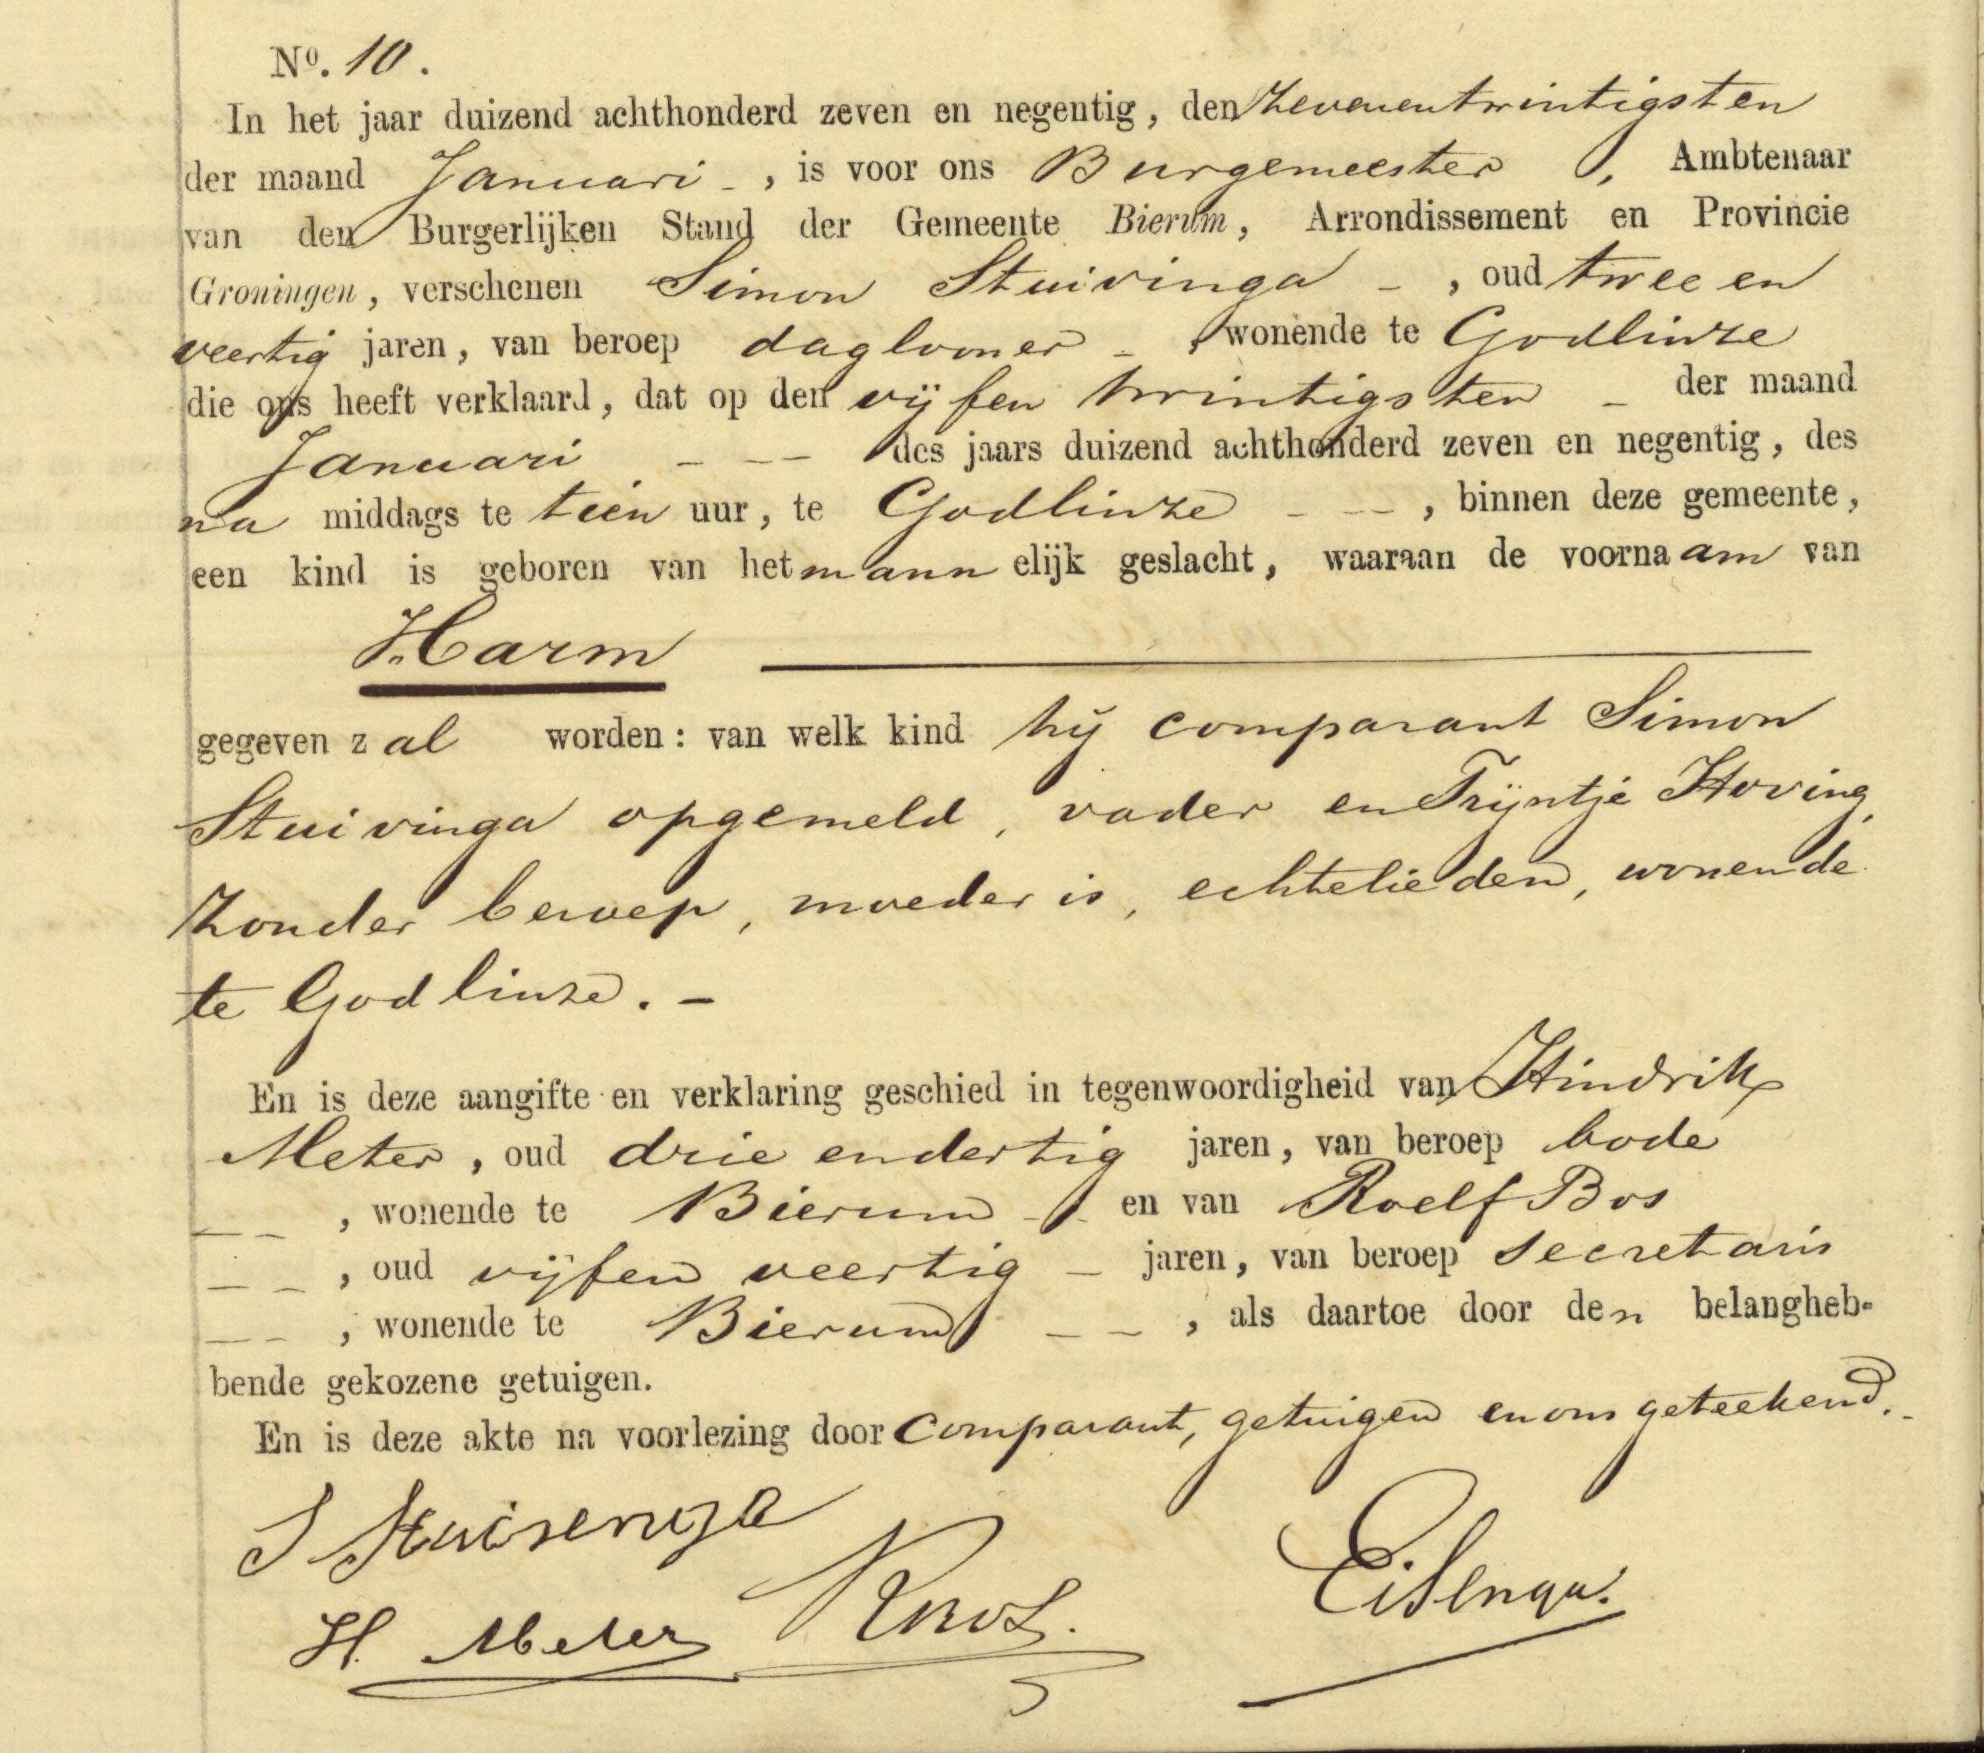 Nº. 10.
In het jaar duizend achthonderd zeven en negentig, den zevenentwintigsten
der maand Januari -, is voor ons Burgemeester, Ambtenaar
van den Burgerlijken Stand der Gemeente Bierum, Arrondissement en Provincie
Groningen, verschenen Simon Stuivinga -, oud twee en
veertig jaren, van beroep daglooner -, wonende te Godlinze
die ons heeft verklaard, dat op den vijfen twintigsten - der maand
Januari - - - des jaars duizend achthonderd zeven en negentig, des
na middags te tien uur, te Godlinze - - -, binnen deze gemeente,
een kind is geboren van het mannelijk geslacht, waaraan de voornaam van
Harm
gegeven zal worden: van welk kind hij comparant Simon
Stuivinga opgemeld, vader en Trijntje Hoving,
zonder beroep, moeder is, echtelieden, wonende
te Godlinze. -
En is deze aangifte en verklaring geschied in tegenwoordigheid van Hindrik
Meter, oud drie endertig jaren, van beroep bode
- -, wonende te Bierum - en van Roelf Bos
- -, oud vijfen veertig - jaren, van beroep secretaris
- -, wonende te Bierum - -, als daartoe door den belangheb-
bende gekozene getuigen.
En is deze akte na voorlezing door comparant, getuigen en ons geteekend. -
S Stuivenga
H. Meter RBos. Eisenga.